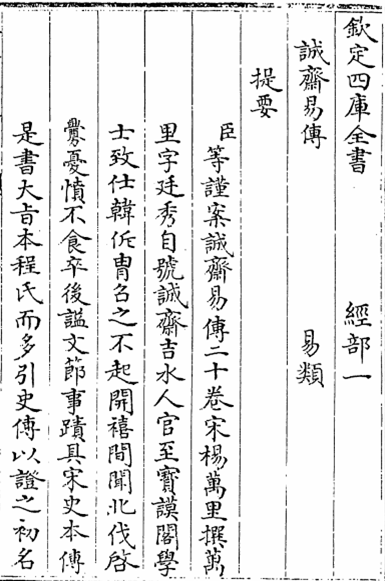 欽定四庫全書　經部一
誠齋易傳　易類
提要
臣等謹案誠齋易傳二十卷宋楊萬里撰萬
里字廷秀自號誠齋吉水人官至寶謨閣學
士致仕韓侂冑召之不起開禧間聞北伐啓
釁憂憤不食卒後諡文節事蹟具宋史本傳
是書大旨本程氏而多引史傳以證之初名